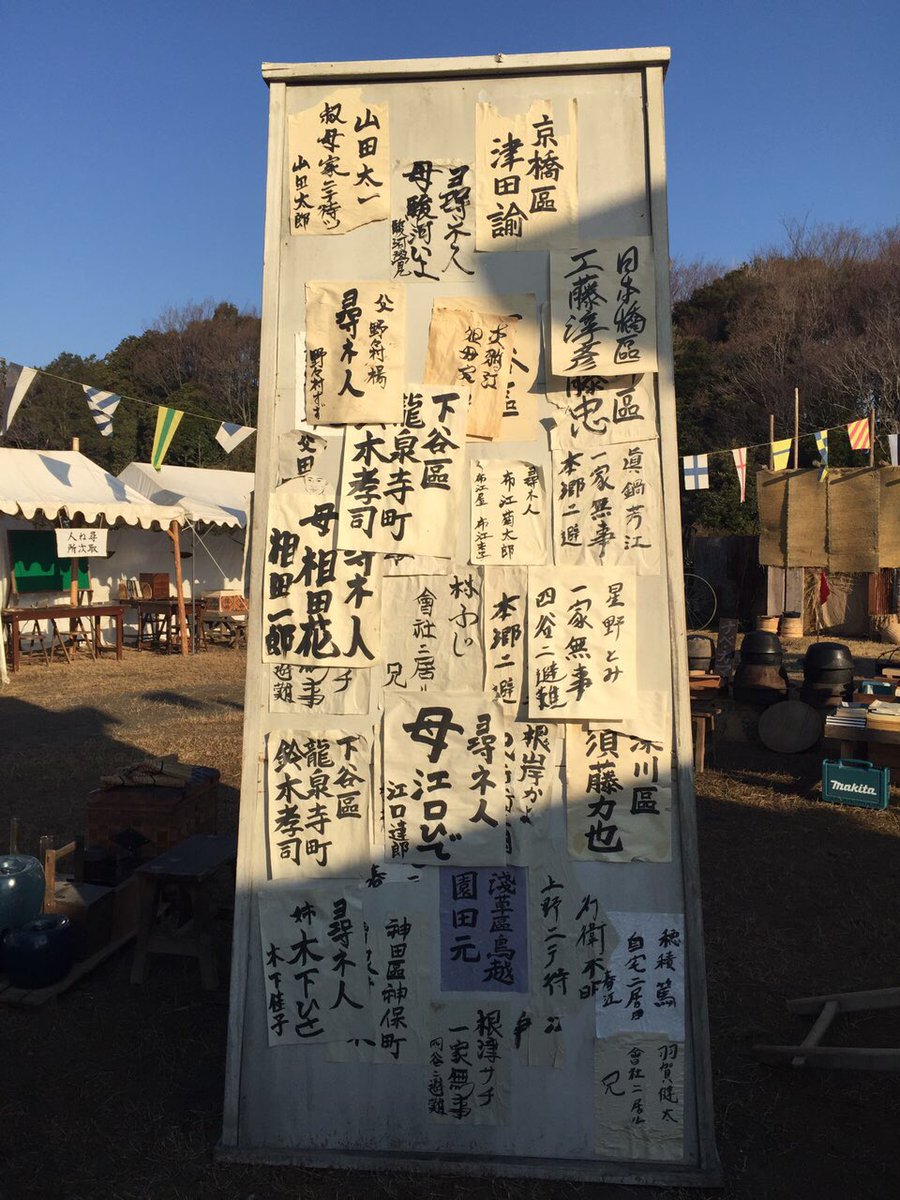 京橋區
津田諭
山田太一
叔母家ニテ待ツ
山田太郎
尋ネ人
母駿河いよ
日本橋區
工藤淳彦
父野々村楊
尋ネ人
祖母宅
區
藤忠
區
下谷區
龍泉寺町
鈴木孝司
尋ネ人
布江菊太郎
眞鍋芳江
一家無事
本郷ニ避
父田
尋ネ人
母相田花
相田一郎
林ふじ
會社ニ居ル
兄
本郷ニ避
星野とみ
一家無事
四谷ニ避難
無事
避難
尋ネ人
母江口ひで
江口達郎
根岸かよ
深川區
須藤力也
下谷區
龍泉寺町
鈴木孝司
淺草區鳥越
園田元
上野ニテ待
行衛不明
穂積篤
自宅ニ居
春江
尋ネ人
姉木下ひさ
木下佳子
神田區神保町
根津サチ
一家無事
四谷ニ避難
羽賀健太
會社ニ居ル
兄
尋ね人
取次所
makita